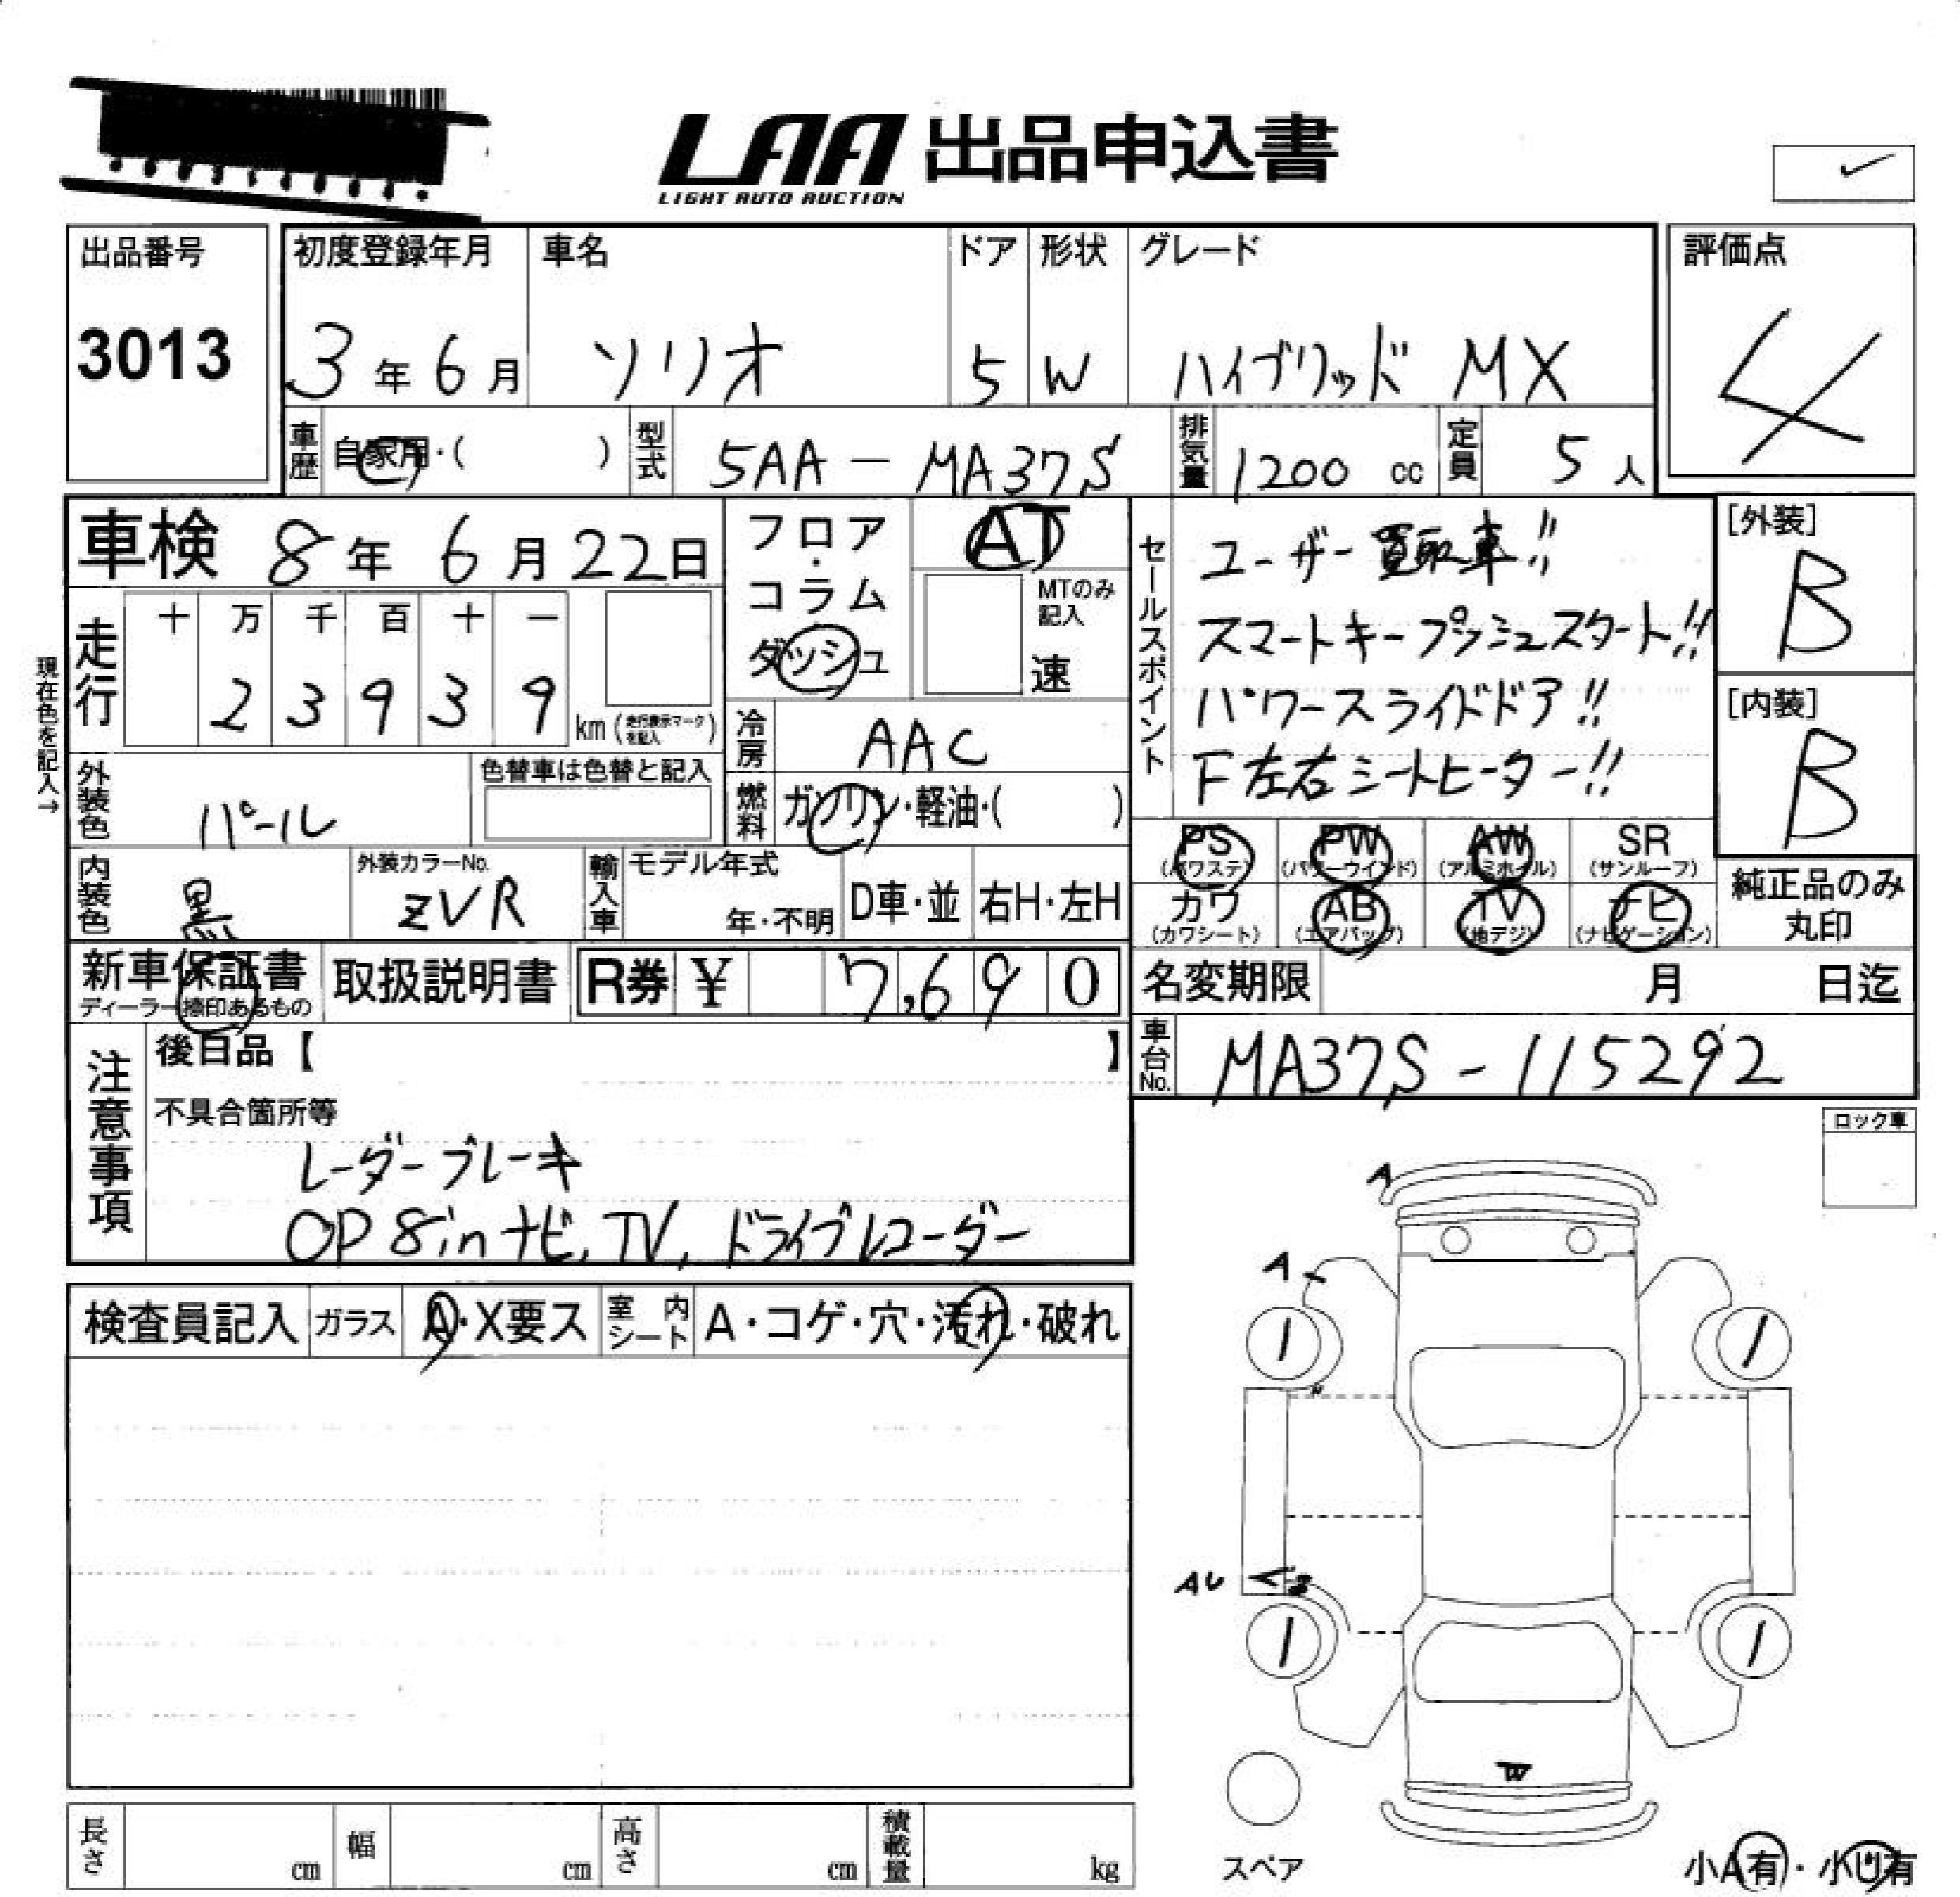 LAA 出品申込書
LIGHT AUTO AUCTION
出品番号
3013
初度登録年月 車名 ドア 形状 グレード
3年6月 ソリオ 5 W ハイブリッド MX
評価点
4
車歴 自家用・( ) 型式 5AA-MA37S 排気量 1200 cc 定員 5人
車検 8年6月22日
フロア・コラム ダッシュ
AT
MTのみ記入
速
現在色を記入→
走行
十 万 千 百 十 一
2 3 9 3 9 km (走行表示マークを記入)
冷房 AAC
外装色 パール
色替車は色替と記入
燃料 ガソリン・軽油・( )
内装色 黒
外装カラーNo.
ZVR
輸入車 モデル年式
年・不明 D車・並 右H・左H
セールスポイント
ユーザー買取車!!
スマートキープッシュスタート!!
パワースライドドア!!
F左右シートヒーター!!
[外装]
B
[内装]
B
PS (パワステ) PW (パワーウインド) AW (アルミホイル) SR (サンルーフ)
カワ (カワシート) AB (エアバッグ) TV (地デジ) ナビ (ナビゲーション)
純正品のみ丸印
新車保証書
ディーラー捺印あるもの
取扱説明書 R券 ¥ 7,690
名変期限 月 日迄
車台No. MA37S-115292
注意事項
後日品【 】
不具合箇所等
レーダーブレーキ
OP 8in ナビ, TV, ドライブレコーダー
検査員記入 ガラス A・X要ス 室内シート A・コゲ・穴・汚れ・破れ
ロック車
A
A
1 1
AU
1 1
W
スペア
小A有・小U有
長さ cm 幅 cm 高さ cm 積載量 kg